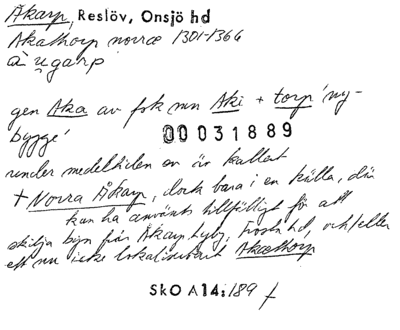 Åkarp, Reslöv, Onsjö hd
Akathorp norræ 1301-1366
gen Aka av fsk mn Aki + torp 'ny-
bygge'
00031889
under medeltiden en är kallat
+ Norra Åkarp, dock bara i en källa, där
kan ha använts tillfälligt för att
skilja byn från Åkarp, Lyby, Frosta hd, och/eller
ett nu icke lokaliserbart Akæthorp
SkO A14:189